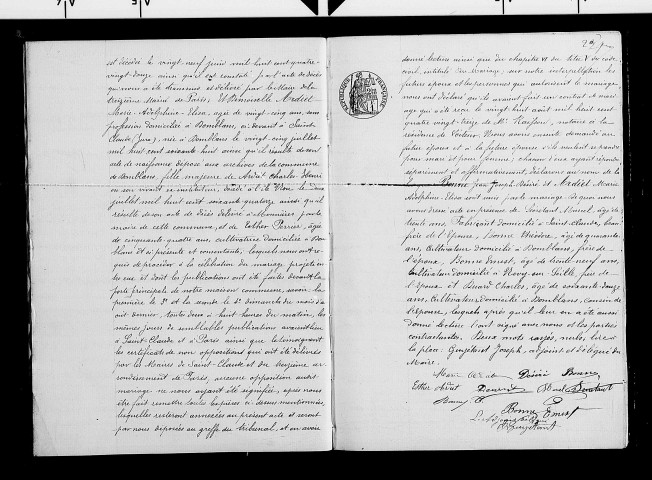 est décédé le vingt-neuf juin mil huit cent quatre-
vingt-douze ainsi qu'il est constaté par l'acte de décès
qui nous a été transmis et délivré par le Maire du
treizième Mairie de Paris. Et Demoiselle Ardiet
Marie-Adolphine-Elisa, âgée de vingt-cinq ans, sans
profession domiciliée à Domblans, ci-devant à Saint-
Claude (Jura), née à Domblans le vingt-cinq juillet
mil huit cent soixante huit ainsi qu'il résulte de son
acte de naissance déposé aux archives de la commune
de Domblans, fille majeure de Ardiet Charles-Henri
en son vivant instituteur, décédé à le deux
juillet mil huit cent soixante quatorze ainsi qu'il
résulte de son acte de décès délivré par le
maire de cette commune, et de Esther Perrier, âgée
de cinquante quatre ans, cultivatrice domiciliée à Dom-
blans et ci présente et consentante, lesquels nous ont re-
quis de procéder à la célébration du mariage projeté en-
tre eux et dont les publications ont été faites devant la
porte principale de notre maison commune, savoir la
première le et la seconde le dimanche du mois d'a-
oût dernier, toutes deux à huit heures du matin, les
mêmes jours de semblables publications avaient lieu
à Saint-Claude et à Paris ainsi que le témoignent
les certificats de non opposition qui ont été délivrés
par les Maires de Saint-Claude et du onzième ar-
rondissement de Paris, aucune opposition audit
mariage ne nous ayant été signifiée, après nous
être fait remettre toutes les pièces ci-dessus mentionnées,
lesquelles resteront annexées au présent acte et seront
par nous déposées au greffe du tribunal, et en avoir
donné lecture ainsi que du chapitre VI du titre V du code
civil intitulé du Mariage, sur notre interpellation les
futurs époux et les personnes qui autorisent le mariage
nous ont déclaré qu'il avait été fait un contrat de maria-
ge qui a été reçu le vingt huit août mil huit cent
quatre vingt-treize de Mr notaire à la
résidence de Voiteur. Nous avons ensuite demandé au
futur époux et à la future épouse s'ils veulent se prendre
pour mari et pour femme ; chacun d'eux ayant répondu
séparément et affirmativement, déclarons au nom de la
Loi que Bonne Jean Joseph Désiré et Ardiet Marie
Adolphine-Elisa sont unis par le mariage. De quoi nous
avons dressé acte en présence de
trente ans, fabricant domicilié à Saint-Claude, beau-
frère de l'épouse, Bonne Théodore, âgé de quarante
ans, cultivateur domicilié à Domblans, frère de
l'époux, Bonne Ernest âgé de trente neuf ans,
cultivateur domicilié à frère de
l'époux et Charles, âgé de soixante-douze
ans, cultivateur domicilié à Domblans, cousin de
l'épouse, lesquels après qu'il leur en a été aussi
donné lecture l'ont signé avec nous et les parties
contractantes. Deux mots rayés nuls, lire à
la place : Joseph, adjoint et délégué du
Maire.
Désiré Bonne
Esther Ardiet
Bonne Ernest
RÉPUBLIQUE FRANÇAISE